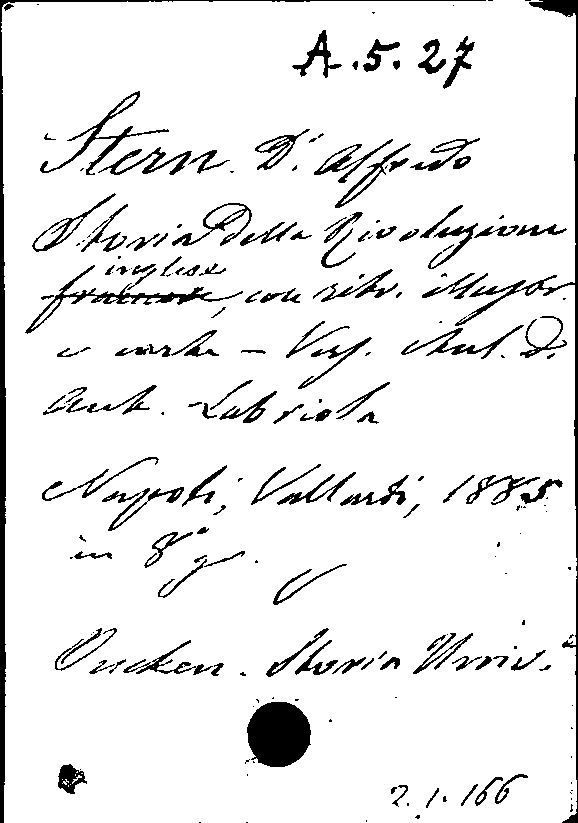 A.5.27
Stern. Dr. Alfredo
Storia della Rivoluzione
inglese
francese, con ritr. illustr.
e carte — Vers. ital. di
Ant. Labriola
Napoli, Vallardi, 1885
in 8° gr.
Oncken. Storia Univ.
2.1.166